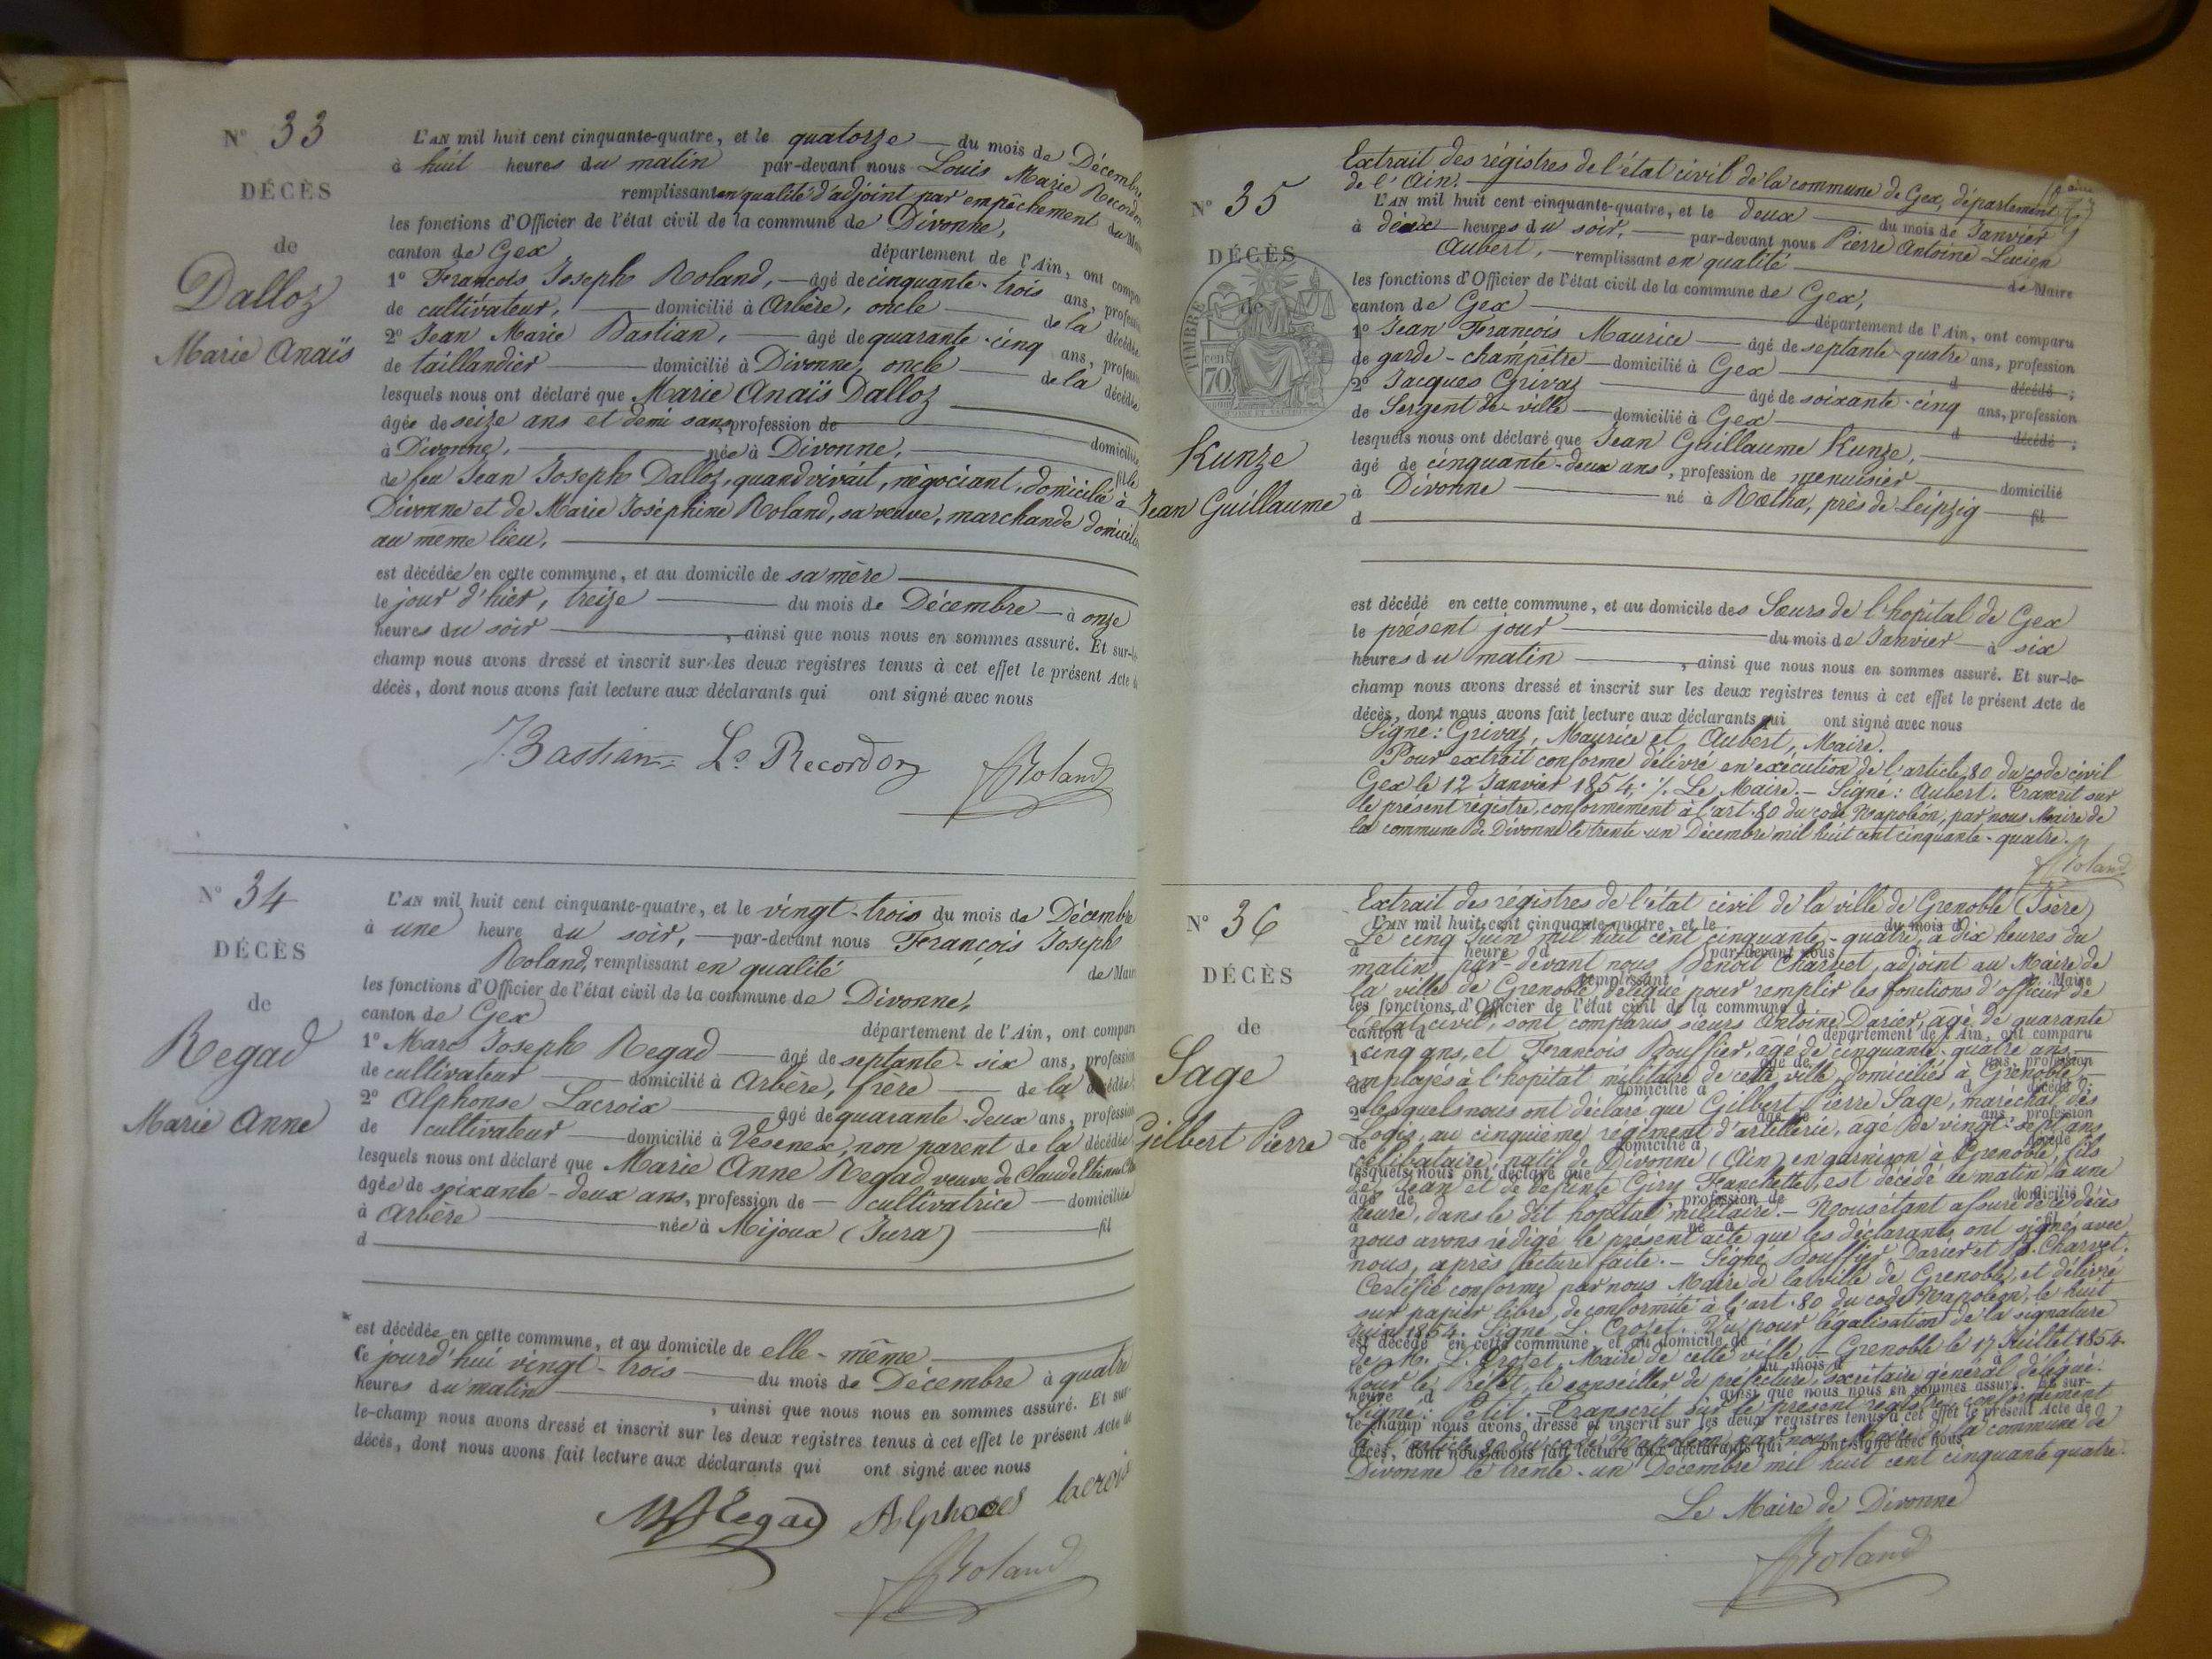 N° 33
DÉCÈS
de
Dalloz
Marie Anaïs
L'AN mil huit cent cinquante-quatre, et le quatorze du mois de Décembre
à huit heures du matin par-devant nous Louis Marie Recordon
remplissant en qualité d'adjoint par empêchement du Maire
les fonctions d'Officier de l'état civil de la commune de Divonne,
canton de Gex département de l'Ain, ont compa
1° François Joseph Roland, âgé de cinquante-trois ans, profession
de cultivateur, domicilié à Arbère, oncle de la décédée
2° Jean Marie Bastian, âgé de quarante-cinq ans, profession
de taillandier domicilié à Divonne, oncle de la décédée
lesquels nous ont déclaré que Marie Anaïs Dalloz
âgée de seize ans et demi sans profession de domiciliée
à Divonne, née à Divonne, fille
de feu Jean Joseph Dalloz, quand vivait, négociant, domicilié à
Divonne et de Marie Joséphine Roland, sa veuve, marchande domicili
au même lieu,
est décédée en cette commune, et au domicile de sa mère
le jour d'hier, treize du mois de Décembre à onze
heures du soir, ainsi que nous nous en sommes assuré. Et sur-le-
champ nous avons dressé et inscrit sur les deux registres tenus à cet effet le présent Acte de
décès, dont nous avons fait lecture aux déclarants qui ont signé avec nous
Bastian Ls Recordon Roland
N° 34
DÉCÈS
de
Regad
Marie Anne
L'AN mil huit cent cinquante-quatre, et le vingt-trois du mois de Décembre
à une heure du soir, par-devant nous François Joseph
Roland, remplissant en qualité de Maire
les fonctions d'Officier de l'état civil de la commune de Divonne,
canton de Gex département de l'Ain, ont comparu
1° Marc Joseph Regad âgé de septante-six ans, profession
de cultivateur domicilié à Arbère, frère de la décédée
2° Alphonse Lacroix âgé de quarante-deux ans, profession
de cultivateur domicilié à Vesenex, non parent de la décédée
lesquels nous ont déclaré que Marie Anne Regad veuve de Claude Etienne
âgée de soixante-deux ans, profession de cultivatrice domiciliée
à Arbère née à Mijoux (Jura) fil
d
est décédée en cette commune, et au domicile de elle-même
ce jourd'hui vingt-trois du mois de Décembre à quatre
heures du matin, ainsi que nous nous en sommes assuré. Et sur-
le-champ nous avons dressé et inscrit sur les deux registres tenus à cet effet le présent Acte de
décès, dont nous avons fait lecture aux déclarants qui ont signé avec nous
Regad Alphonse lacroix
Roland
N° 35
DÉCÈS
de
TIMBRE
70
Kunze
Jean Guillaume
Extrait des régistres de l'état civil de la commune de Gex, département
de l'Ain.
L'AN mil huit cent cinquante-quatre, et le deux du mois de Janvier
à deux heures du soir, par-devant nous Pierre Antoine Lucien
Aubert, remplissant en qualité de Maire
les fonctions d'Officier de l'état civil de la commune de Gex,
canton de Gex département de l'Ain, ont comparu
1° Jean François Maurice âgé de septante-quatre ans, profession
de garde-champêtre domicilié à Gex d décédé ;
2° Jacques Grivaz âgé de soixante-cinq ans, profession
de Sergent de ville domicilié à Gex d décédé ;
lesquels nous ont déclaré que Jean Guillaume Kunze,
âgé de cinquante-deux ans, profession de menuisier domicilié
à Divonne né à Rœtha, près de Leipzig fil
d
est décédé en cette commune, et au domicile des Sœurs de l'hopital de Gex
le présent jour du mois de Janvier à six
heures du matin, ainsi que nous nous en sommes assuré. Et sur-le-
champ nous avons dressé et inscrit sur les deux registres tenus à cet effet le présent Acte de
décès, dont nous avons fait lecture aux déclarants qui ont signé avec nous
Signé : Grivaz, Maurice et Aubert, Maire.
Pour extrait conforme délivré en exécution de l'article 80 du code civil
Gex le 12 Janvier 1854 ; Le Maire. - Signé : Aubert. Transcrit sur
le présent régistre, conformément à l'art. 80 du code Napoléon, par nous Maire de
la commune de Divonne le trente-un Décembre mil huit cent cinquante-quatre.
Roland
N° 36
DÉCÈS
de
Sage
Gilbert Pierre
Extrait des régistres de l'état civil de la ville de Grenoble (Isère)
Le cinq Juin mil huit cent cinquante-quatre, à dix heures du
matin, par-devant nous Benoit Charvet, adjoint au Maire de
la ville de Grenoble délégué pour remplir les fonctions d'officier de
l'état civil, sont comparus sieurs Antoine Darier, agé de quarante
cinq ans, et François Bouffier, agé de cinquante-quatre ans,
employés à l'hopital militaire de cette ville, domiciliés à Grenoble,
lesquels nous ont déclaré que Gilbert Pierre Sage, maréchal des
Logis, au cinquième régiment d'artillerie, agé de vingt-sept ans,
célibataire, natif de Divonne (Ain) en garnison à Grenoble, fils
de Jean et de défunte Giry Fanchette, est décédé ce matin à une
heure, dans le dit hopital militaire. - Nous étant assuré de ce décès
nous avons rédigé le présent acte que les déclarants ont signé avec
nous, après lecture faite. - Signé Bouffier Darier et B. Charvet.
Certifié conforme par nous Maire de la ville de Grenoble, et délivré
sur papier libre, de conformité à l'art. 80 du code Napoléon, le huit
Juin 1854. Signé L. Crozet. Vu pour légalisation de la signature
de M. L. Crozet, Maire de cette ville. - Grenoble le 17 Juillet 1854.
Pour le Préfet, le conseiller de préfecture, secrétaire général délégué.
Signé : Petit. - Transcrit sur le présent registre, conformément
à l'article 80 du code Napoléon par nous Maire de la commune de
Divonne le trente-un Décembre mil huit cent cinquante quatre.
Le Maire de Divonne
Roland